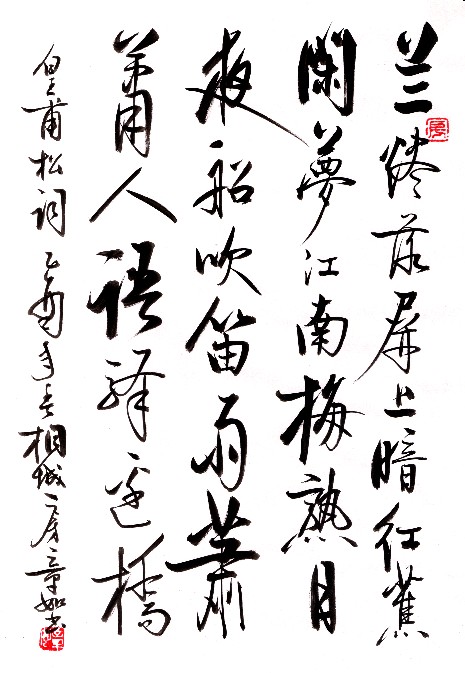 兰烬落屏上暗红蕉
闲梦江南梅熟日
夜船吹笛雨萧
萧人语驿边桥
皇甫松词乙酉年相城章如书